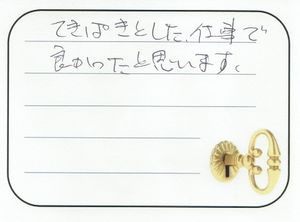 てきぱきとした仕事で
良かったと思います。